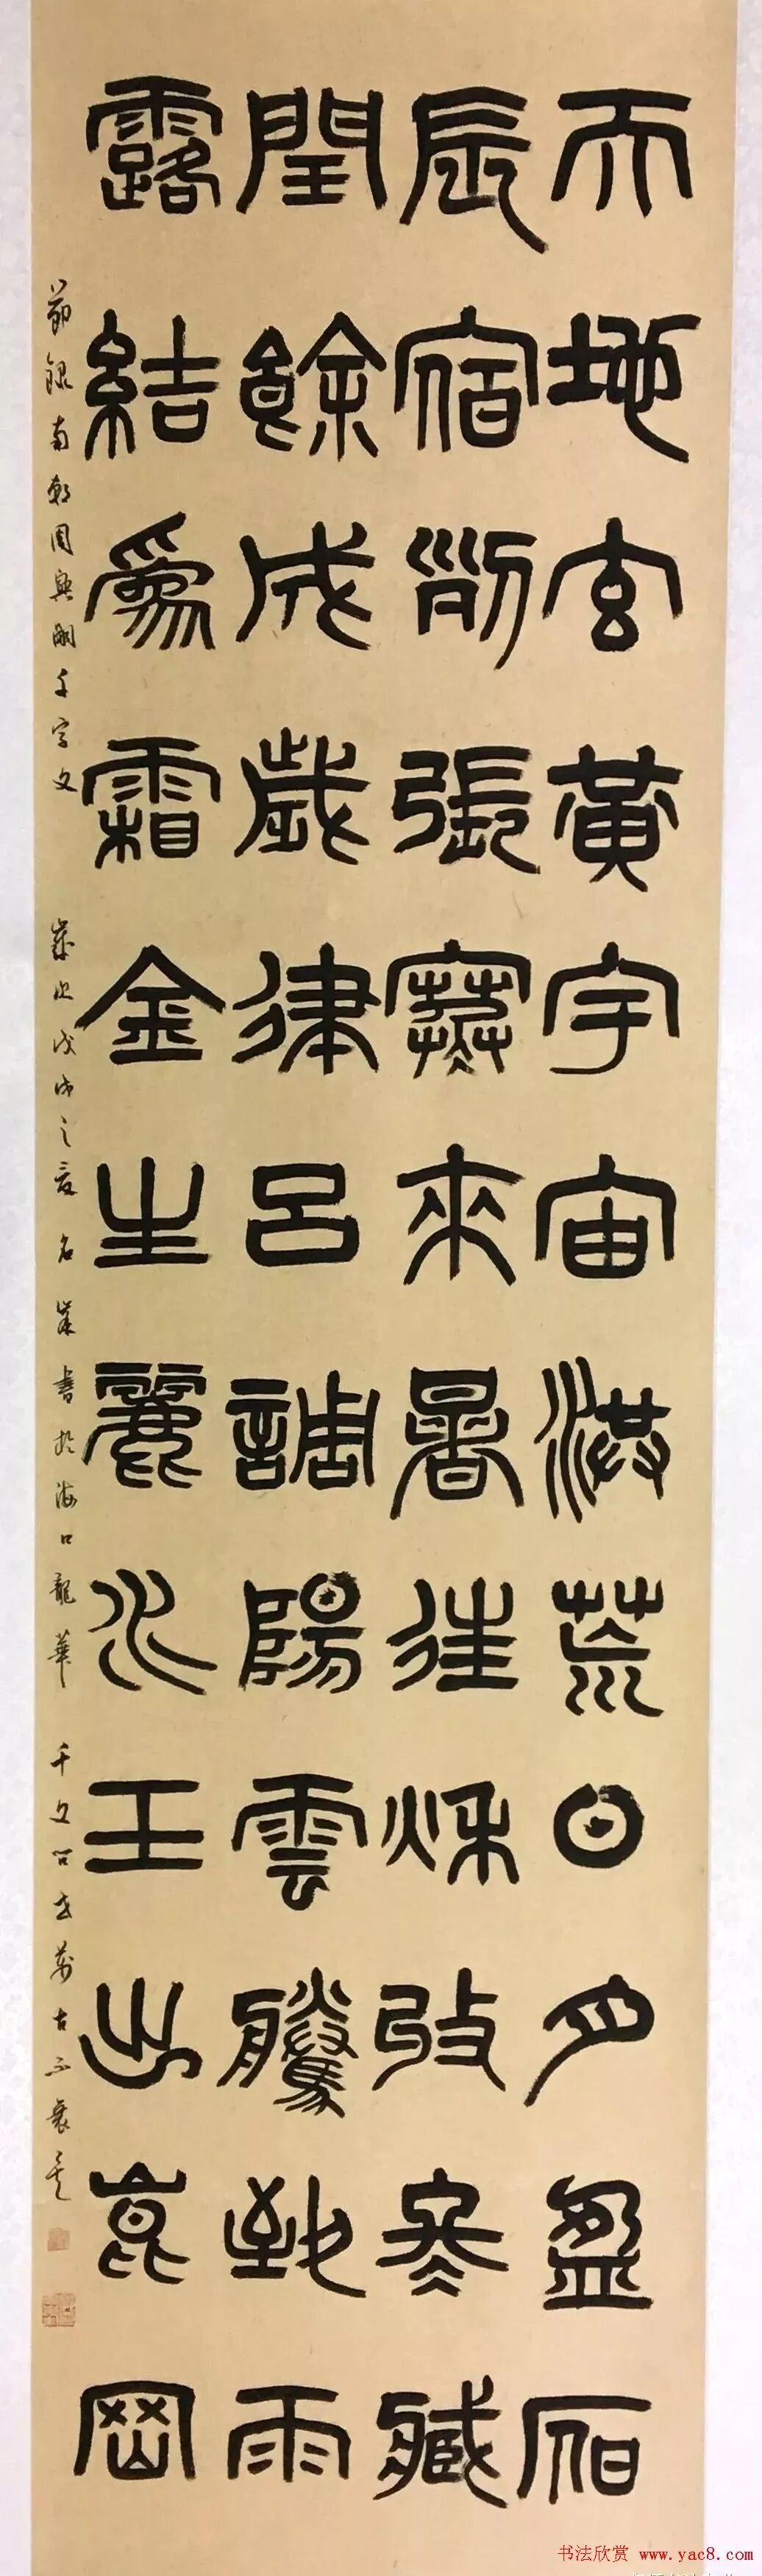 天地玄黃宇宙洪荒日月盈昃
辰宿列張寒來暑往秋收冬藏
閏餘成歲律呂調陽雲騰致雨
露結為霜金生麗水玉出崑岡
節錄南朝周興嗣千字文 歲次戊戌之夏名家書於海口龍華 千文公世萬古不衰矣
书法欣赏 www.yac8.com